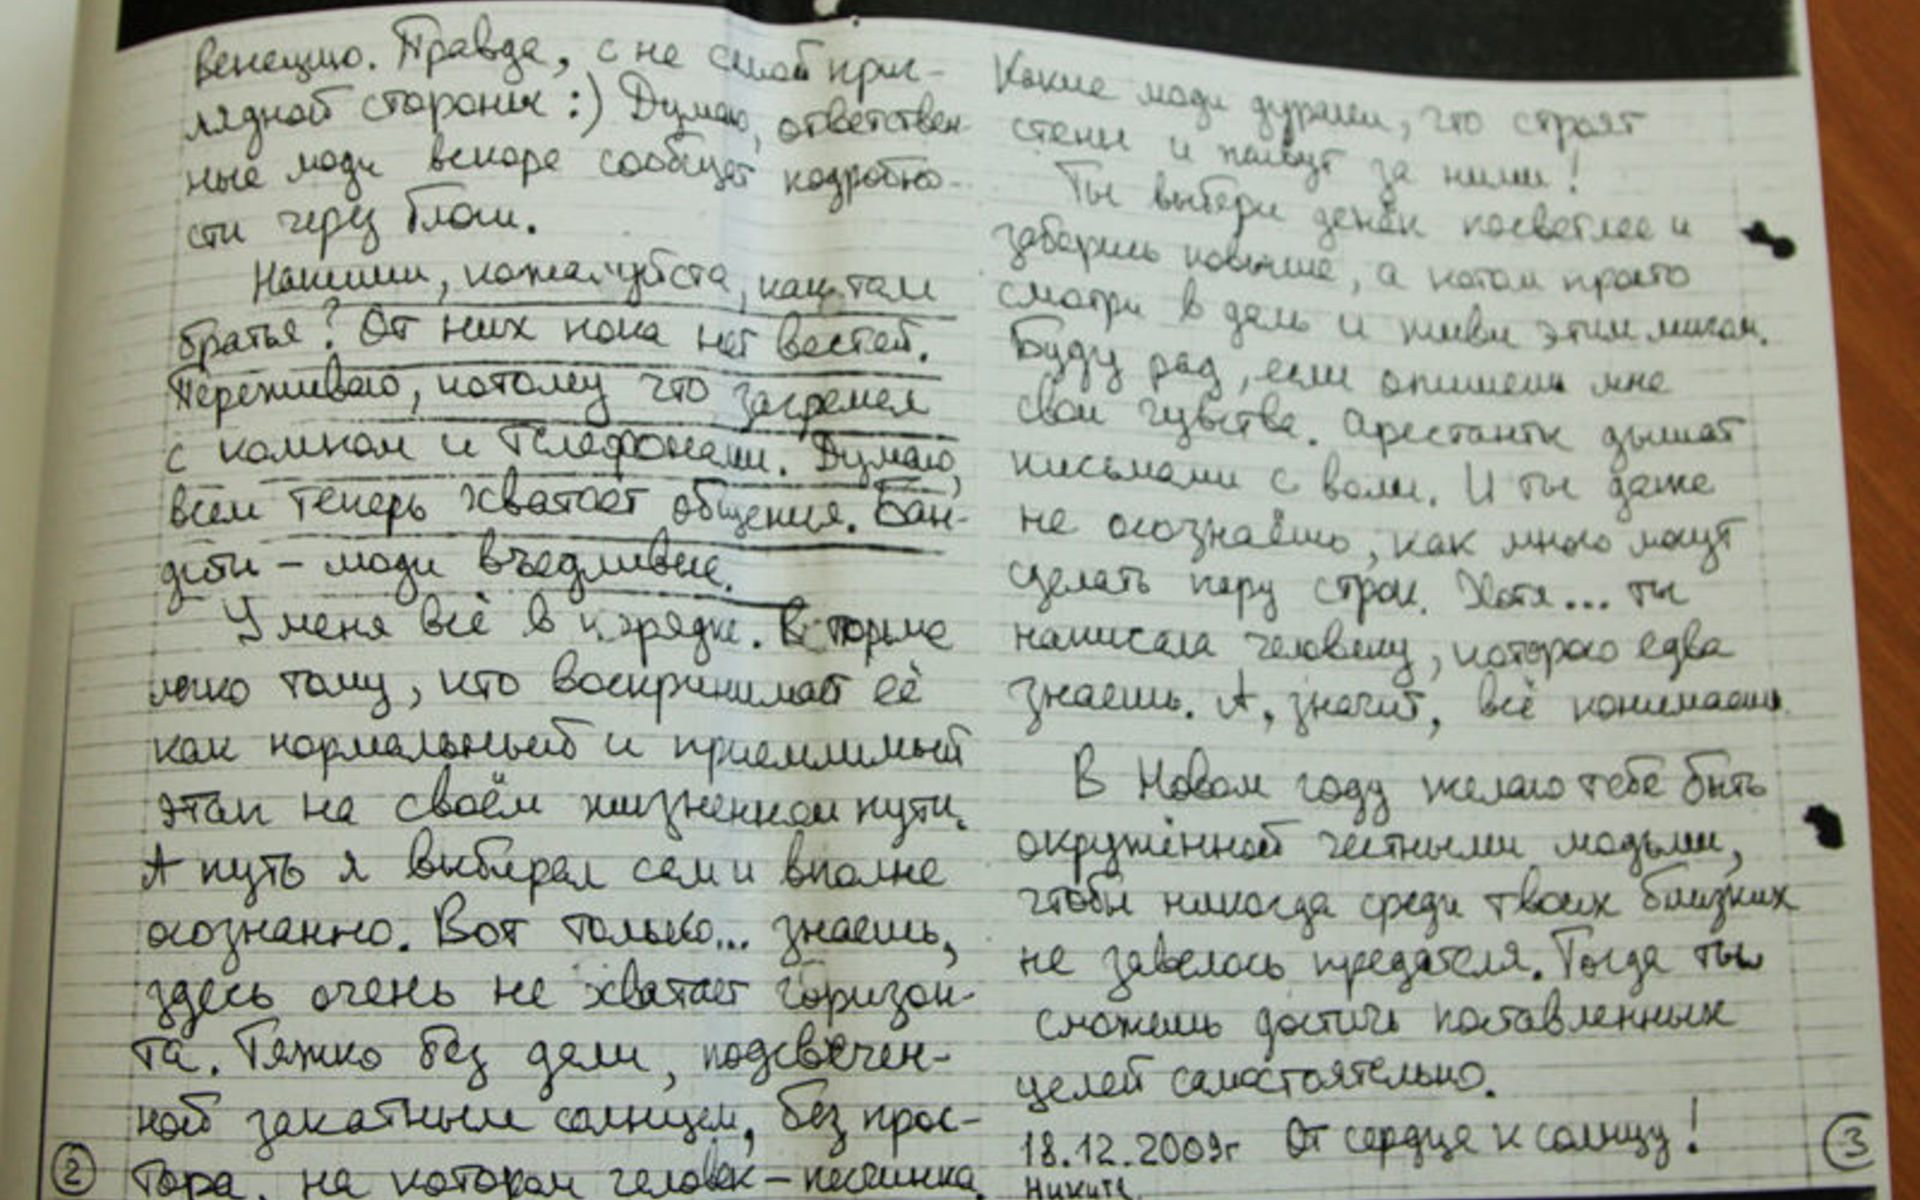 Венецию. Правда, с не самой приг-
лядной стороны :) Думаю, ответствен-
ные люди вскоре сообщат подробно-
сти через блоги.
Напиши, пожалуйста, как там
братья? От них пока нет вестей.
Переживаю, потому что загремел
с компом и телефонами. Думаю,
всем теперь хватает общения. Бан-
диты – люди въедливые.
У меня всё в порядке. В тюрьме
легко тому, кто воспринимает её
как нормальный и приемлимый
этап на своём жизненном пути.
А путь я выбирал сам и вполне
осознанно. Вот только... знаешь,
здесь очень не хватает горизон-
та. Тяжко без дали, подсвечен-
ной закатным солнцем, без прос-
тора, на котором человек – песчинка.
2
Какие люди дураки, что строят
стены и живут за ними!
Ты выбери денёк посветлее и
заберись повыше, а потом просто
смотри в даль и живи этим мигом.
Буду рад, если опишешь мне
свои чувства. Арестанты дышат
письмами с воли. И ты даже
не осознаёшь, как много могут
сделать пару строк. Хотя... ты
написала человеку, которого едва
знаешь. А, значит, всё понимаешь.
В Новом году желаю тебе быть
окружённой честными людьми,
чтобы никогда среди твоих близких
не завелось предателя. Тогда ты
сможешь достичь поставленных
целей самостоятельно.
18.12.2009г От сердца к солнцу!
Никита.
3